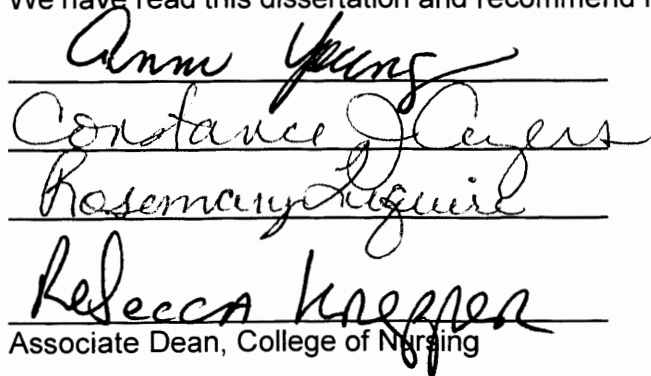 We have read this dissertation and recommend
Anne Young
Constance J Ayers
Rosemary Luquire
Rebecca Krepper
Associate Dean, College of Nursing